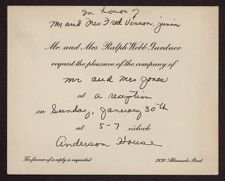 In honor of
Mr and Mrs Fred Vinson, junior
Mr. and Mrs. Ralph Webb Gardner
request the pleasure of the company of
Mr and Mrs Jones
at a reception
on Sunday, January 30th
at 5-7 o'clock
Anderson House
The favour of a reply is requested
Street